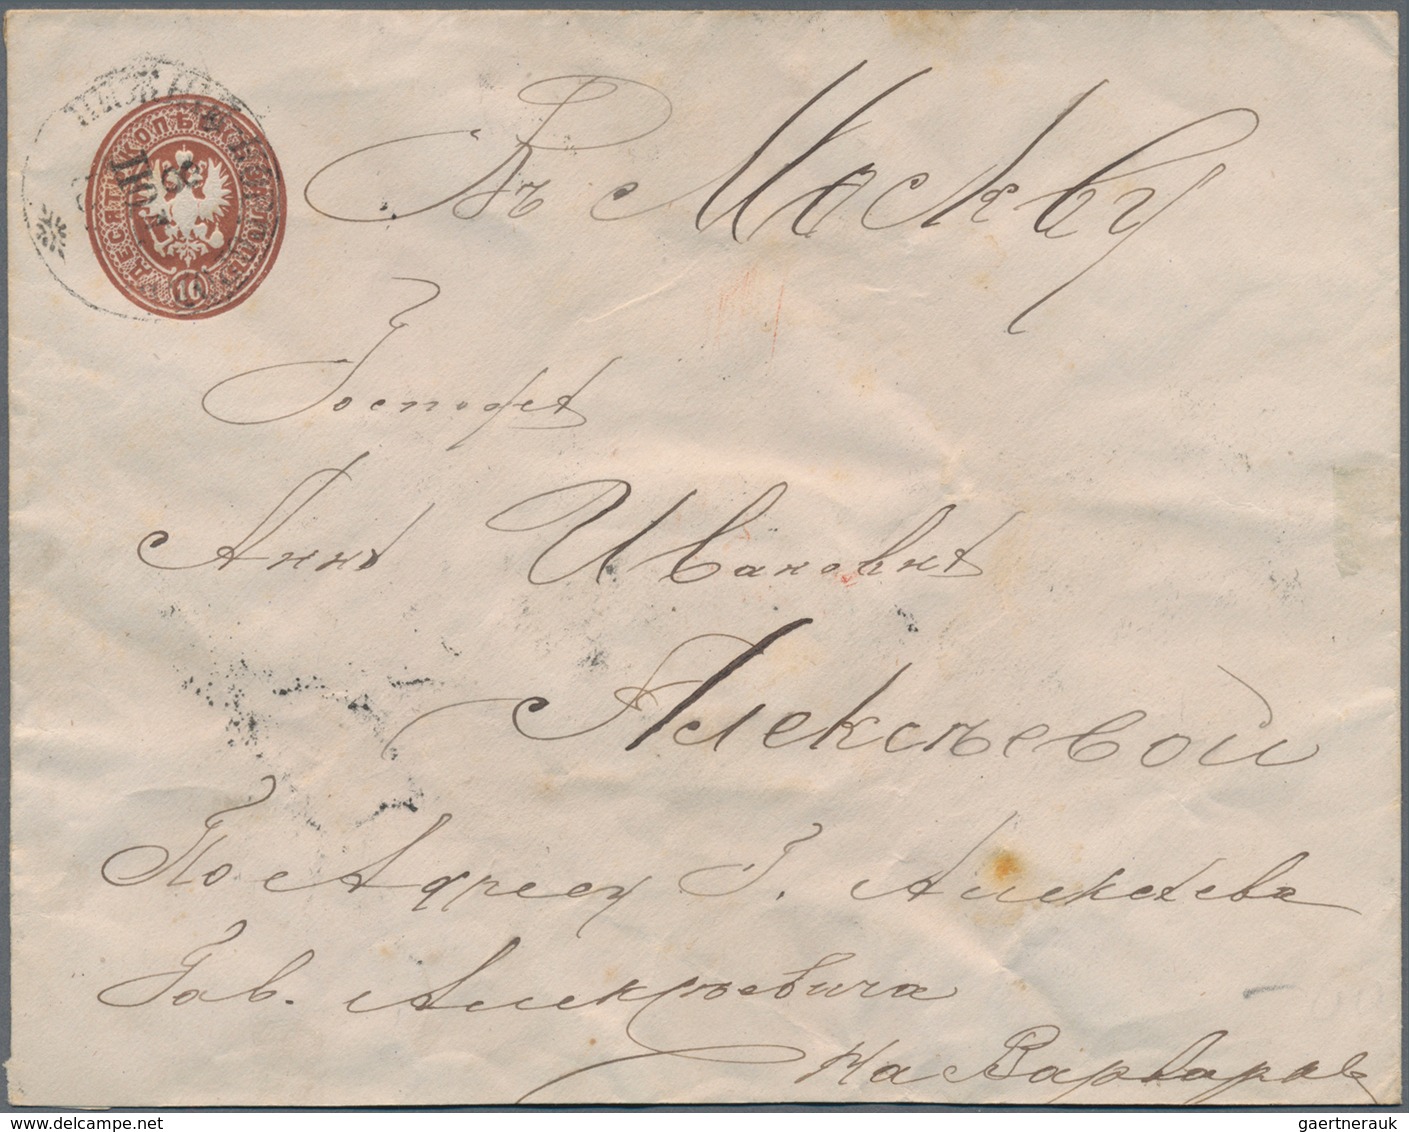 ДЕСЯТЬ КОПѢЕКЪ
10
8
ІЮЛ
Въ Москву
Госпожѣ
Аннѣ Ивановнѣ
Алексѣевой
По Адресу Г. Алексѣева
Гав. Алексѣевича
На Варваркѣ
gaertnerauk